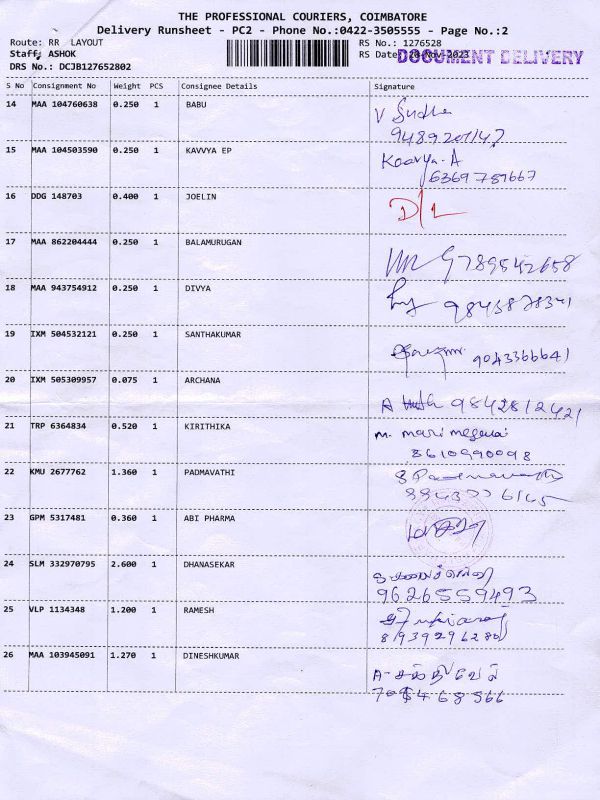 THE PROFESSIONAL COURIERS, COIMBATORE
Delivery Runsheet - PC2 - Phone No.:0422-3505555 - Page No.:2
Route: RR LAYOUT RS No.: 1276528
Staff: ASHOK RS Date: 20-Nov-2023 DOCUMENT DELIVERY
DRS No.: DCJB127652802
S No Consignment No Weight PCS Consignee Details Signature
14 MAA 104760638 0.250 1 BABU V Sudha
9489201147
15 MAA 104503590 0.250 1 KAVVYA EP Kaavya.A
6369789667
16 DDG 148703 0.400 1 JOELIN D/L
17 MAA 862204444 0.250 1 BALAMURUGAN 9789542658
18 MAA 943754912 0.250 1 DIVYA
19 IXM 504532121 0.250 1 SANTHAKUMAR 9043366641
20 IXM 505309957 0.075 1 ARCHANA A 9842812421
21 TRP 6364834 0.520 1 KIRITHIKA m. mari
8610990098
22 KMU 2677762 1.360 1 PADMAVATHI
23 GPM 5317481 0.360 1 ABI PHARMA
24 SLM 332970795 2.600 1 DHANASEKAR
9626559493
25 VLP 1134348 1.200 1 RAMESH
81939296280
26 MAA 103945091 1.270 1 DINESHKUMAR A. சக்திவேல்